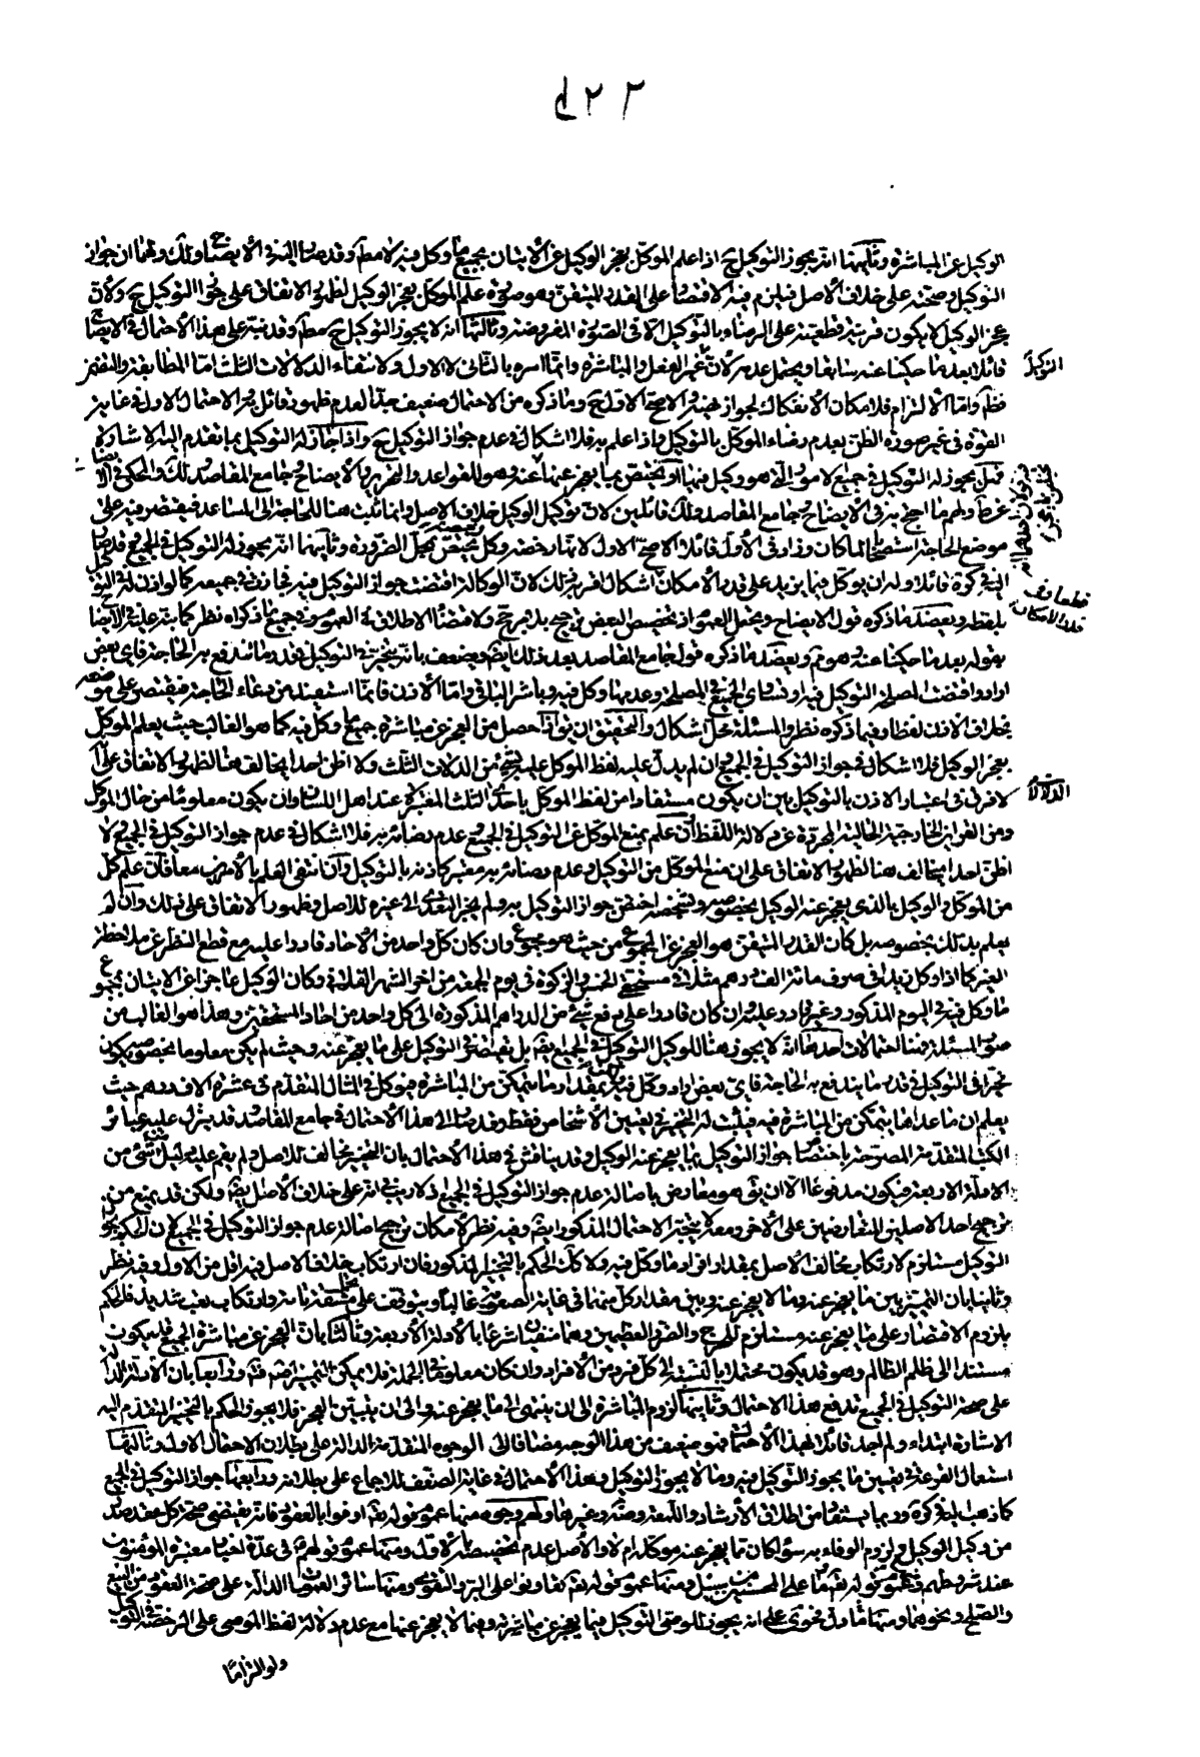 الوكيل عن المباشرة وثانيهما انه يجوز التوكيل ح اذا علم الموكل بعجز الوكيل عن الاتيان بجميع ما وكل فيه لا مطلقا وقد صار اليه في الايضاح ولك ولهما ان جواز
التوكيل وصحته على خلاف الاصل فيلزم فيه الاقتصار على القدر المتيقن وهو صورة علم الموكل بعجز الوكيل لظهور الاتفاق على جواز التوكيل ح ولان
عجز الوكيل لا يكون قرينة قطعية على الرضاء بالتوكيل الا في الصورة المفروضة وثالثها انه لا يجوز التوكيل ح مطلقا وقد نبه على هذا الاحتمال في الايضاح
قائلا بعد ما حكينا عنه سابقا ويحتمل عدمه لان غير الفعل والمباشرة وانما امره بالثاني لا الاول ولانتفاء الدلالات الثلث اما المطابقة والتضمن
فظاهر واما الالتزام فلامكان الانفكاك لجواز والاصح الاول ح وما ذكره من الاحتمال ضعيف جدا لعدم ظهور قائل به والاحتمال الاول في غاية
القوة في غير صورة الظن بعدم رضاء الموكل بالتوكيل واذا علم به فلا اشكال في عدم جواز التوكيل ح واذا جاز له التوكيل بما تقدم اليه الاشارة
فهل يجوز له التوكيل في جميع الامور التي هو وكيل فيها او يختص بما يعجز عنه وهو للقواعد والتحرير والايضاح وجامع المقاصد ولك والمحكي في
عن ط ولهم ما احتج به في الايضاح وجامع المقاصد ولك قائلين لان توكيل الوكيل خلاف الاصل وانما ثبت هنا للحاجة الى المساعد فيقتصر فيه على
موضع الحاجة استصحابا لما كان وزاد في الاول قائلا الاصح الاول لانها رخصة وكل رخصة يختص بمحل الضرورة وثانيهما انه يجوز له التوكيل في الجميع قد صار
اليه في كرة قائلا وله ان يوكل فيما يزيد على قدر الامكان اشكال اقربه ذلك لان الوكالة اقتضت جواز التوكيل فيه فجازت في جميعه كما لو اذن له في التوكيل
بلفظه ويعضد ما ذكره قول الايضاح ويحتمل العموم اذ تخصيص البعض ترجيح بلا مرجح ولاقتضاء الاطلاق العموم وفي جميع ما ذكراه نظر كما نبه عليه في الايضاح
بقوله بعد ما حكينا عنه وهو ويعضد ما ذكره قول جامع المقاصد بعد ذلك ايضا ويضعف بانه يتخير في التوكيل بقدر ما تندفع به الحاجة فاي بعض
اراد واقتضت المصلحة التوكيل فيه او تساوي الجميع في المصلحة وعدمها وكل فيه وباشر الباقي واما الاذن فانما استفيد من دعاء الحاجة فيقتصر على موضعه
بخلاف الاذن لفظا وفيما ذكره نظر والمسئلة محل اشكال والتحقيق ان يقال اذا حصل من العجز عن مباشرة جميع ما وكل فيه كما هو الغالب حيث يعلم الموكل
بعجز الوكيل فلا اشكال في جواز التوكيل في الجميع وان لم يدل عليه لفظ الموكل عليه بشيء من الدلالات الثلث ولا اظن احدا يخالف هنا لظهور الاتفاق على ان
لا فرق في اعتبار الاذن بالتوكيل بين ان يكون مستفادا من لفظ الموكل باحدى الثلث المعتبرة عند اهل اللسان وان يكون معلوما من حال الموكل
ومن القرائن الخارجية الحالية المجردة عن دلالة اللفظ وان علم بمنع الموكل عن التوكيل في الجميع وعدم رضائه به فلا اشكال في عدم جواز التوكيل في الجميع ولا
اظن احدا يخالف هنا لظهور الاتفاق على ان منع الموكل من التوكيل وعدم رضائه به معتبر كاذنه بالتوكيل وان انتفى العلم بالامرين معا فان علم كل
من الموكل والوكيل بالذي يعجز عنه الوكيل بخصوصه وتشخصه اختص جواز التوكيل به ولم يجز التعدي الى غيره للاصل وظهور الاتفاق على ذلك وان لم
يعلم بذلك بخصوصه بل كان القدر المتيقن هو العجز عن المجموع من حيث هو مجموع وان كان كل واحد من الآحاد قادرا عليه مع قطع النظر عن ملاحظة
الغير كما اذا وكل زيدا في صرف مائة الف درهم مثلا في مستحقي الخمس والزكوة في يوم الجمعة من اخر الشهر الفلاني وكان الوكيل عاجزا عن الاتيان بمجموع
ما وكل فيه في اليوم المذكور وغير قادر عليه وان كان قادرا على دفع شيء من الدراهم المذكورة الى كل واحد من احاد المستحقين وهذا هو الغالب من
صور المسئلة فهنا احتمالات احدها انه لا يجوز هنا للوكيل التوكيل في الجميع ايضا بل يقتصر في التوكيل على ما يعجز عنه وحيث لم يكن معلوما بخصوصه يكون
مخيرا في التوكيل في قدر ما يندفع به الحاجة فاي بعض اراد وكل فيه بمقدار ما يتمكن من المباشرة فيوكل في المثال المتقدم في عشرة الاف درهم حيث
يعلم ان ما عداها يتمكن من المباشرة فيه فيثبت له التخيير في تعيين الاشخاص فقط وقد صار الى هذا الاحتمال في جامع المقاصد وقد ينزل عليه عبائر
الكتب المتقدمة المصرحة باختصاص جواز التوكيل بما يعجز عنه الوكيل وقد يناقش في هذا الاحتمال بان التخيير مخالف للاصل ولم يقم عليه دليل شيء من
الادلة الاربعة فيكون مدفوعا الا ان يقال هو معارض باصالة عدم جواز التوكيل في الجميع اذ لا ريب في انه على خلاف الاصل ايضا ولكن قد يمنع من
ترجيح احد الاصلين المتعارضين على الاخر ومعه لا يتجه الاحتمال المذكور ايضا وفيه نظر لامكان ترجيح اصالة عدم جواز التوكيل في الجميع لان الحكم بجواز
التوكيل مستلزم لارتكاب مخالف الاصل بمقدار افراد ما وكل فيه ولا كذلك الحكم بالتخيير المذكور فان ارتكاب خلاف الاصل فيه اقل من الاول وفيه نظر
وثانيا بان التمييز بين ما يعجز عنه وما لا يعجز عنه وبين مقدار كل منهما في غاية الصعوبة غالبا ويتوقف على مشقة تامة وارتكاب تعب شديد فالحكم
بلزوم الاقتصار على ما يعجز عنه مستلزم للحرج والضرر العظيمين وهما منفيان شرعا بالادلة الاربعة وثالثا بان العجز عن مباشرة الجميع قد يكون
مستندا الى ظلم الظالم وهو قد يكون محتملا بالنسبة الى كل فرد من الافراد وان كان معلوما في الجملة فلا يمكن التمييز ثم ورابعا بان الادلة الدالة
على صحة التوكيل في الجميع تدفع هذا الاحتمال وثانيها لزوم المباشرة الى ان ينتهى الى ما يعجز عنه والى ان يتبين العجز فلا يجوز الحكم بالتخيير المتقدم اليه
الاشارة ابتداء ولم اجد قائلا بهذا الاحتمال فهو ضعيف من هذا الوجه مضافا الى الوجوه المتقدمة الدالة على بطلان الاحتمال الاول وثالثها
استعمال القرعة في تعيين ما يجوز التوكيل فيه وما لا يجوز التوكيل وهذا الاحتمال في غاية الضعف للاجماع على بطلانه ورابعها جواز التوكيل في الجميع
كما ذهب اليه في كرة وربما يستفاد من اطلاق الارشاد واللمعة وضه وغيرها ولهم وجوه منها عموم قوله تعالى اوفوا بالعقود فانه يقتضي صحة كل عقد صدر
من وكيل الوكيل ولزوم الوفاء به سواء كان مما يعجز عنه موكله ام لا والاصل عدم تخصيصه بالاول ومنها عموم قولهم في عدة اخبار معتبرة المؤمنون
عند شروطهم ومنها عموم قوله تعالى ما على المحسنين من سبيل ومنها عموم قوله تعالى تعاونوا على البر والتقوى ومنها سائر العمومات الدالة على صحة العقود من البيع
والصلح ونحوهما ومنها ما دل بفحوى على انه يجوز للوصي التوكيل فيما يعجز عن مباشرته وفيما لا يعجز عنها مع عدم دلالة لفظ الموصي على الرخصة في التوكيل
ولو التزاما